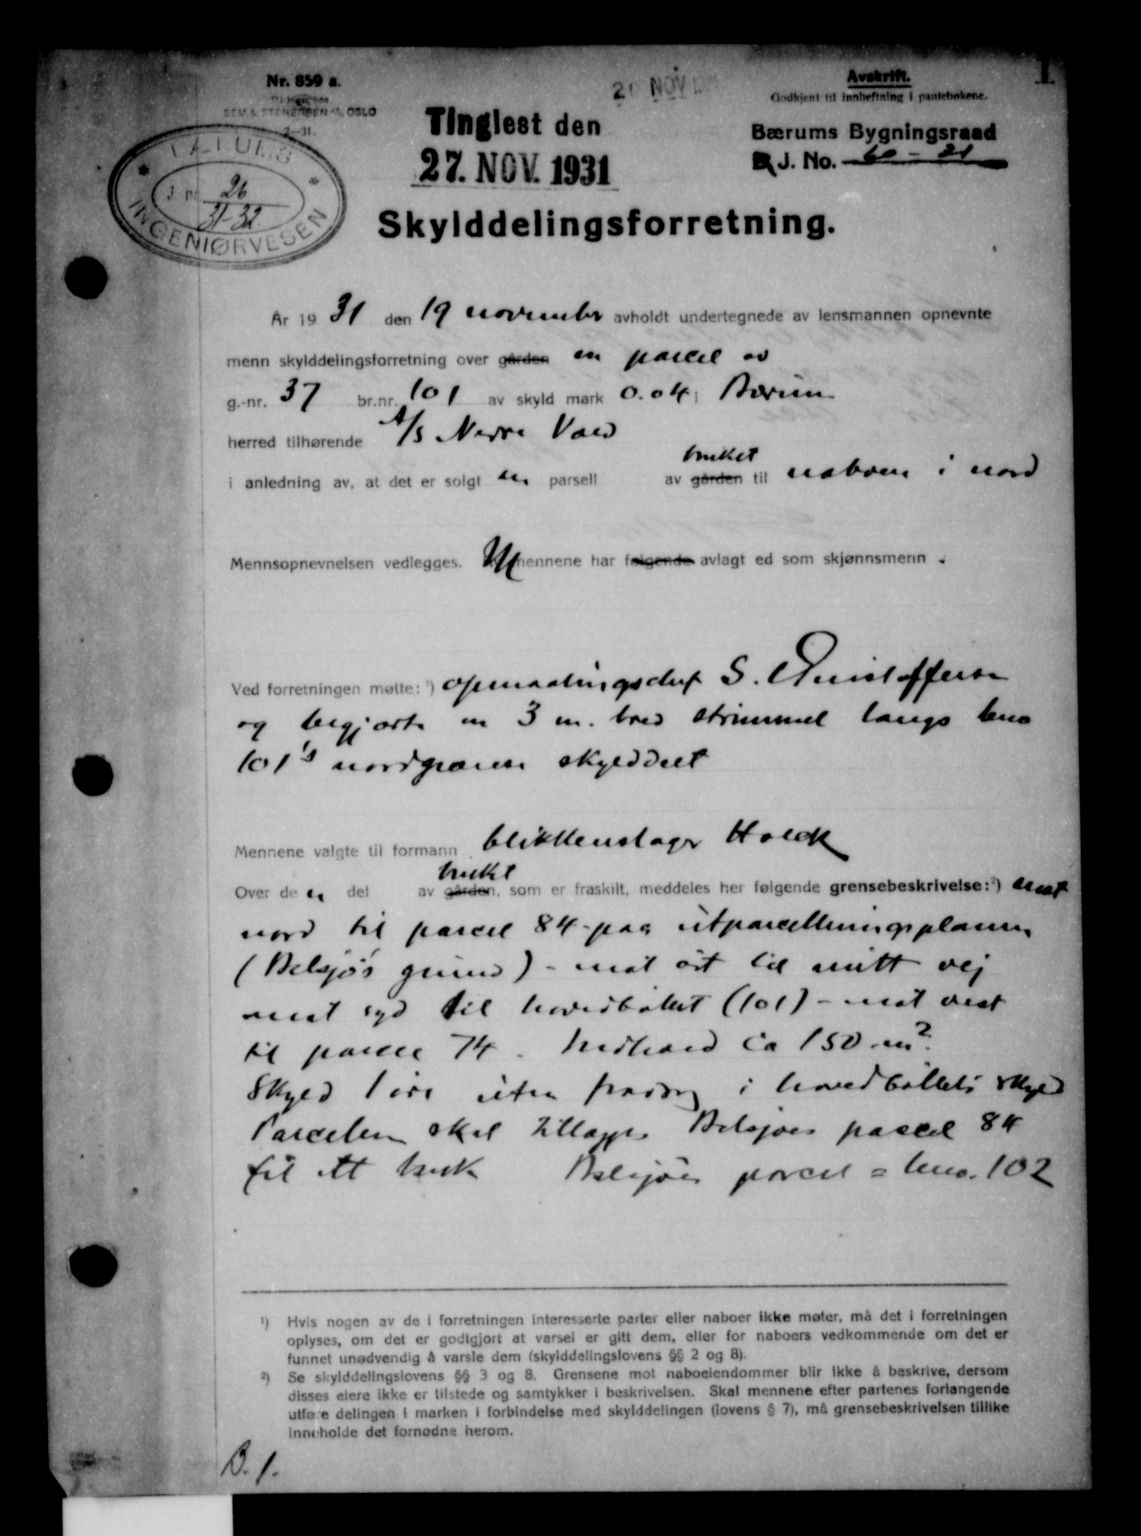 Nr. 859 a.
OSLO
INGENIØRVESEN
J. nr. 26
31-32
Tinglest den
27. NOV. 1931
Avskrift.
Godkjent til innheftning i pantebøkene.
Bærums Bygningsraad
J. No. 60 - 31
Skylddelingsforretning.
År 1931 den 19 november avholdt undertegnede av lensmannen opnevnte
menn skylddelingsforretning over gården en parcel av
g.-nr. 37 br.nr. 101 av skyld mark 0.04 i Bærum
herred tilhørende A/S Nedre Vold
bruket
i anledning av, at det er solgt en parsell av gården til naboen i nord
Mennsopnevnelsen vedlegges. Mennene har følgende avlagt ed som skjønnsmenn.
Ved forretningen møtte: ¹) opmaalingschef S. Christoffersen
og begjærte en 3 m. bred strimmel langs bno
101's nordgrænse skylddelt
Mennene valgte til formann blikkenslager Holck
bruket
Over den del av gården, som er fraskilt, meddeles her følgende grensebeskrivelse: ²) mot
nord til parcel 84 paa utparcelleringsplanen
(Belsjø's grund) - mot øst til midt vej
mot syd til hovedbølet (101) - mot vest
til parcel 74. Indhold ca 150 m².
Skyld 1 øre uten fradrag i hovedbølets skyld
Parcelen skal tillægges Belsjøes parcel 84
til ett bruk Belsjøes parcel = bno. 102
¹) Hvis nogen av de i forretningen interesserte parter eller naboer ikke møter, må det i forretningen
oplyses, om det er godtgjort at varsel er gitt dem, eller for naboers vedkommende om det er
funnet unødvendig å varsle dem (skylddelingslovens §§ 2 og 8).
²) Se skylddelingslovens §§ 3 og 8. Grensene mot naboeiendommer blir ikke å beskrive, dersom
disses eiere ikke er tilstede og samtykker i beskrivelsen. Skal mennene efter partenes forlangende
utføre delingen i marken i forbindelse med skylddelingen (lovens § 7), må grensebeskrivelsen tillike
inneholde det fornødne herom.
B. 1.